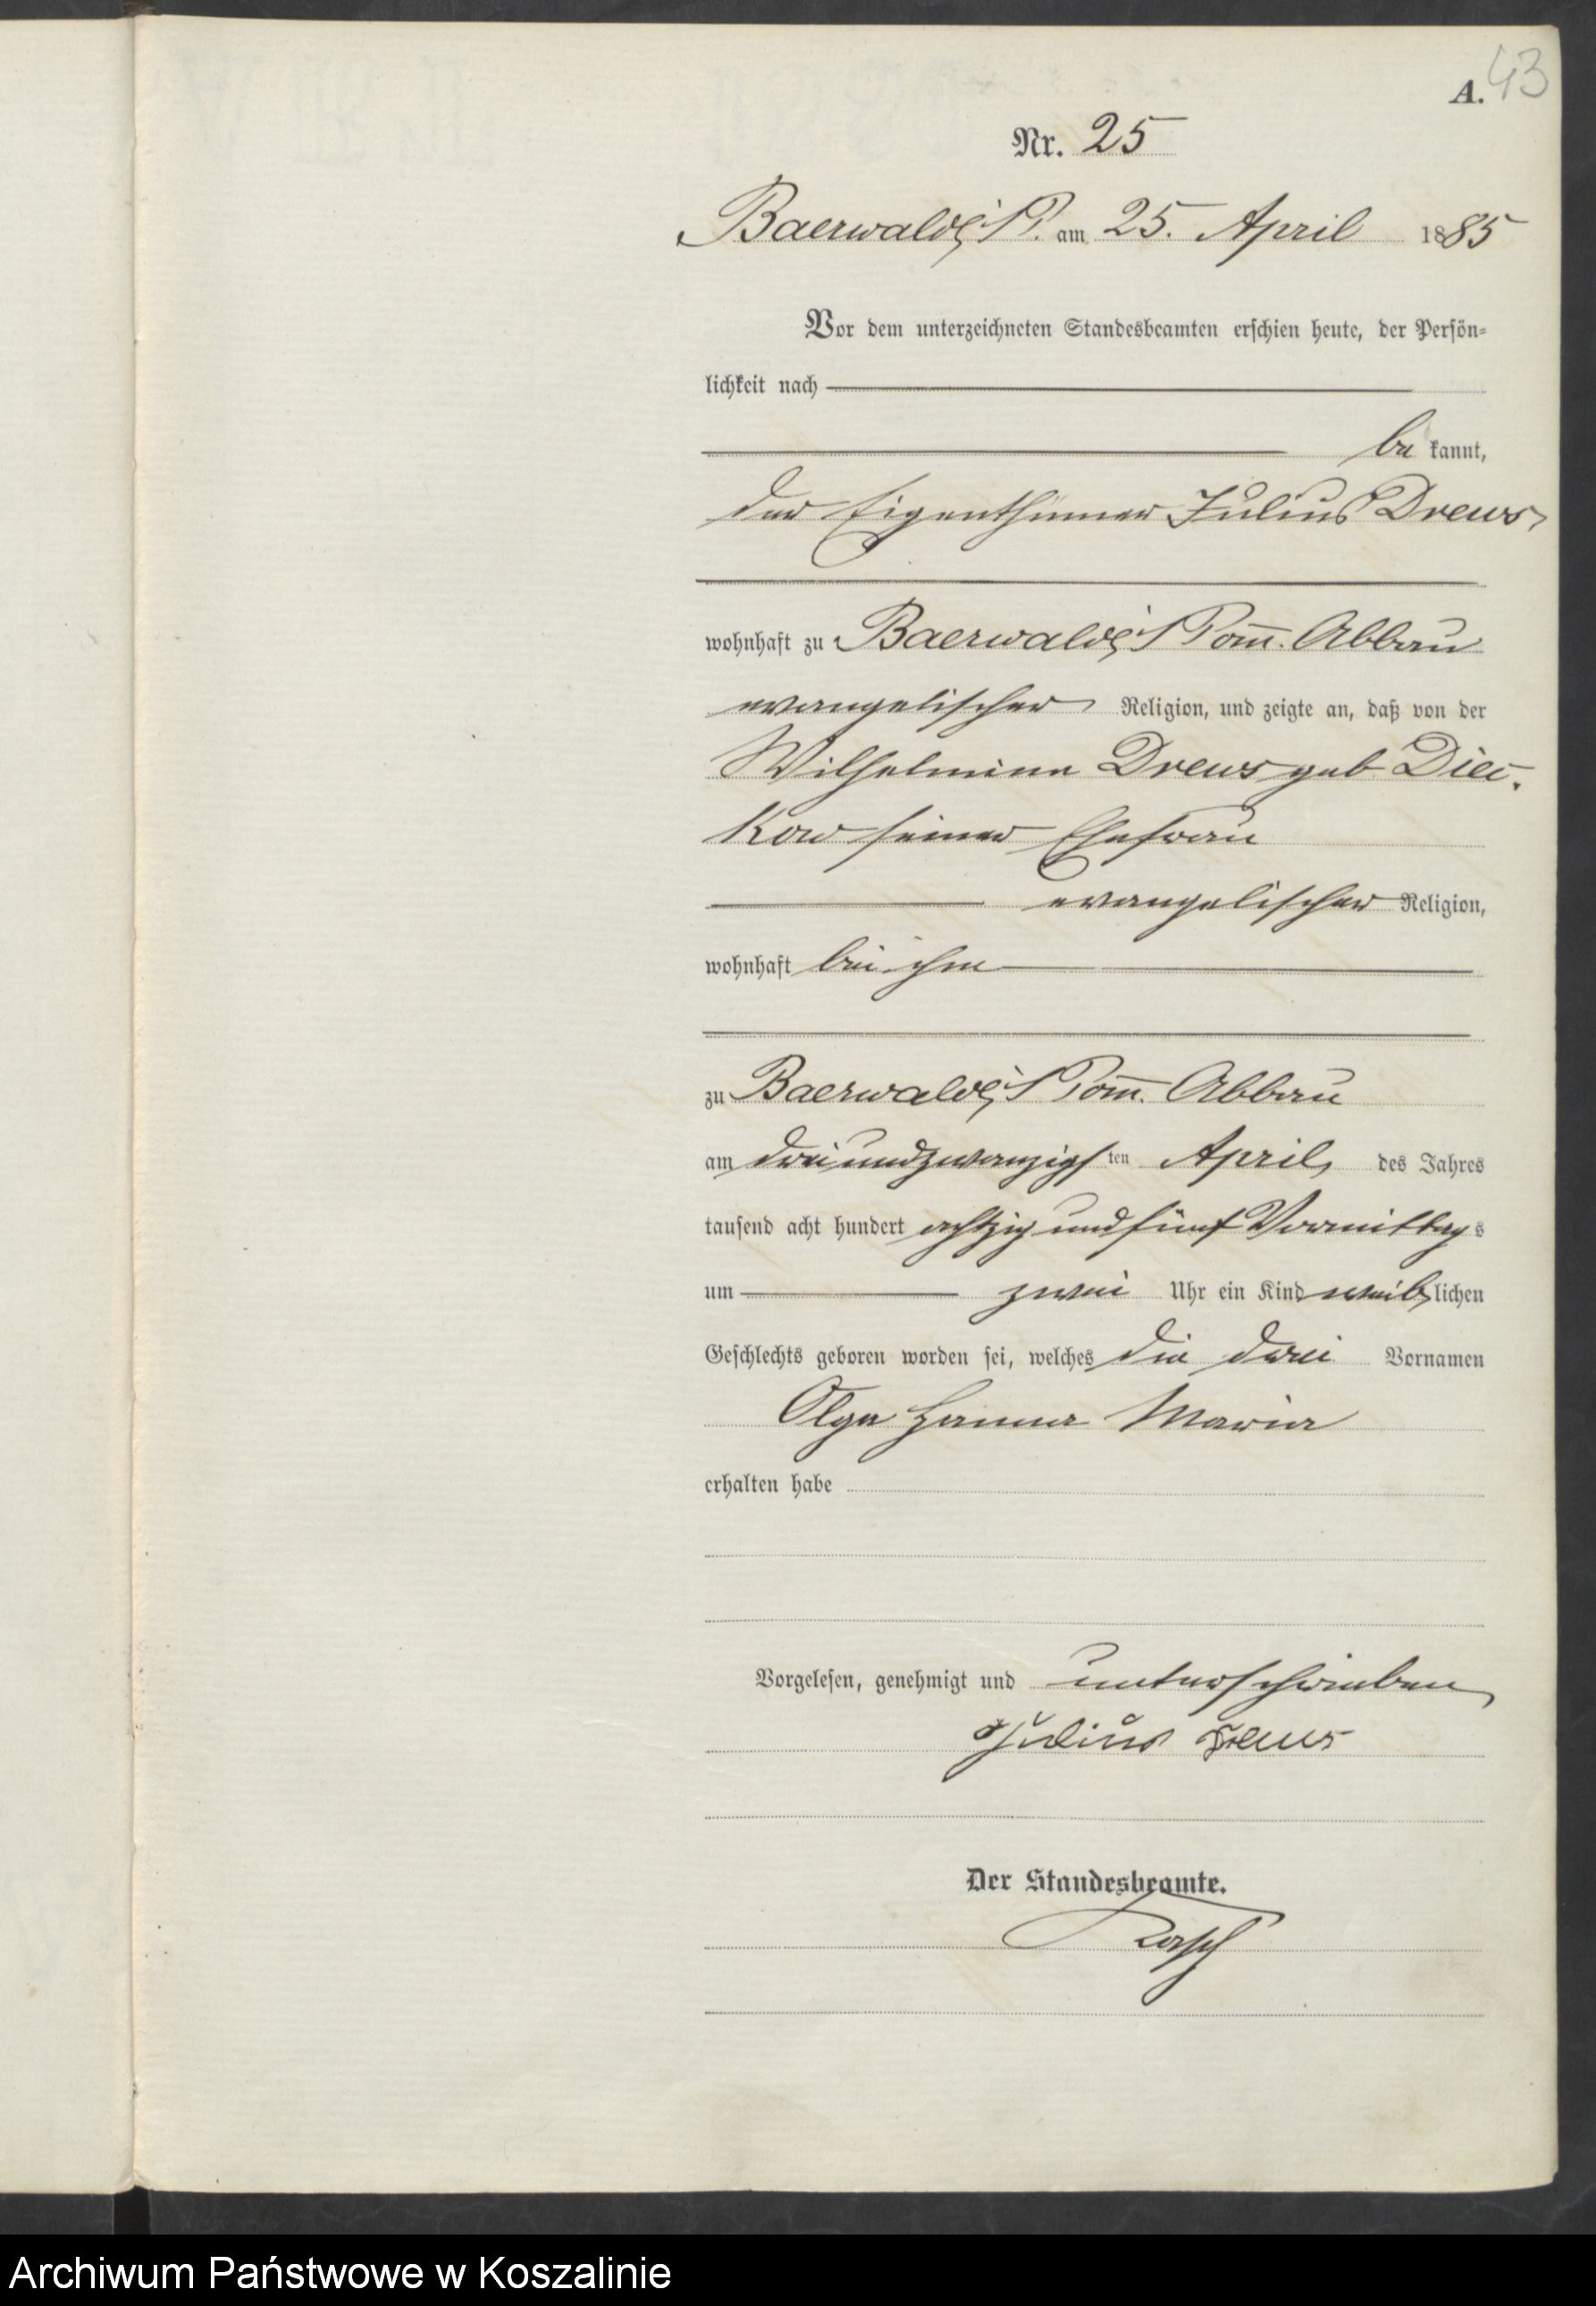 A. 43
Nr. 25
Baerwalde i/P. am 25. April 1885
Vor dem unterzeichneten Standesbeamten erschien heute, der Persön-
lichkeit nach
be kannt,
der Eigenthümer Julius Drews,
wohnhaft zu Baerwalde i/Pom̄. Abbau
evangelischer Religion, und zeigte an, daß von der
Wilhelmine Drews geb. Diec-
kow seiner Ehefrau
evangelischer Religion,
wohnhaft bei ihm
zu Baerwalde i/Pom̄. Abbau
am dreiundzwanzigsten April, des Jahres
tausend acht hundert achtzig und fünf Vormittags
um zwei Uhr ein Kind weiblichen
Geschlechts geboren worden sei, welches die drei Vornamen
Olga Hanna Maria
erhalten habe
Vorgelesen, genehmigt und unterschrieben
Julius Drews
Der Standesbeamte.
Archiwum Państwowe w Koszalinie